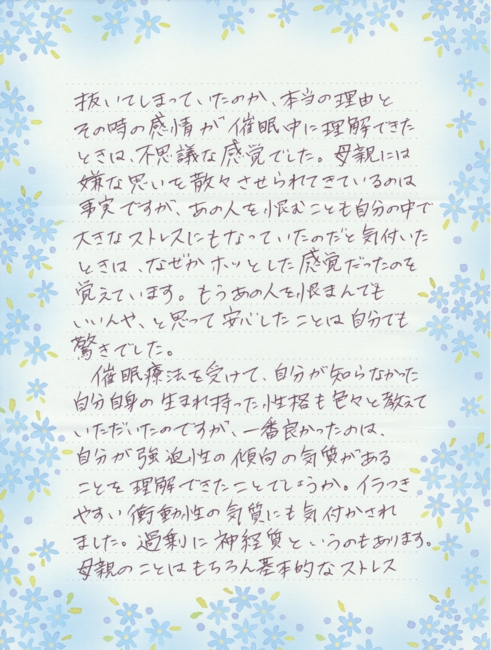 抜いてしまっていたのか、本当の理由と
その時の感情が催眠中に理解できた
ときは、不思議な感覚でした。母親には
嫌な思いを散々させられてきているのは
事実ですが、あの人を恨むことも自分の中で
大きなストレスにもなっていたのだと気付いた
ときは、なぜかホッとした感覚だったのを
覚えています。もうあの人を恨まんでも
いいんや、と思って安心したことは自分でも
驚きでした。
催眠療法を受けて、自分が知らなかった
自分自身の生まれ持った性格も色々と教えて
いただいたのですが、一番良かったのは、
自分が強迫性の傾向の気質がある
ことを理解できたことでしょうか。イラつき
やすい衝動性の気質にも気付かされ
ました。過剰に神経質というのもあります。
母親のことはもちろん基本的なストレス